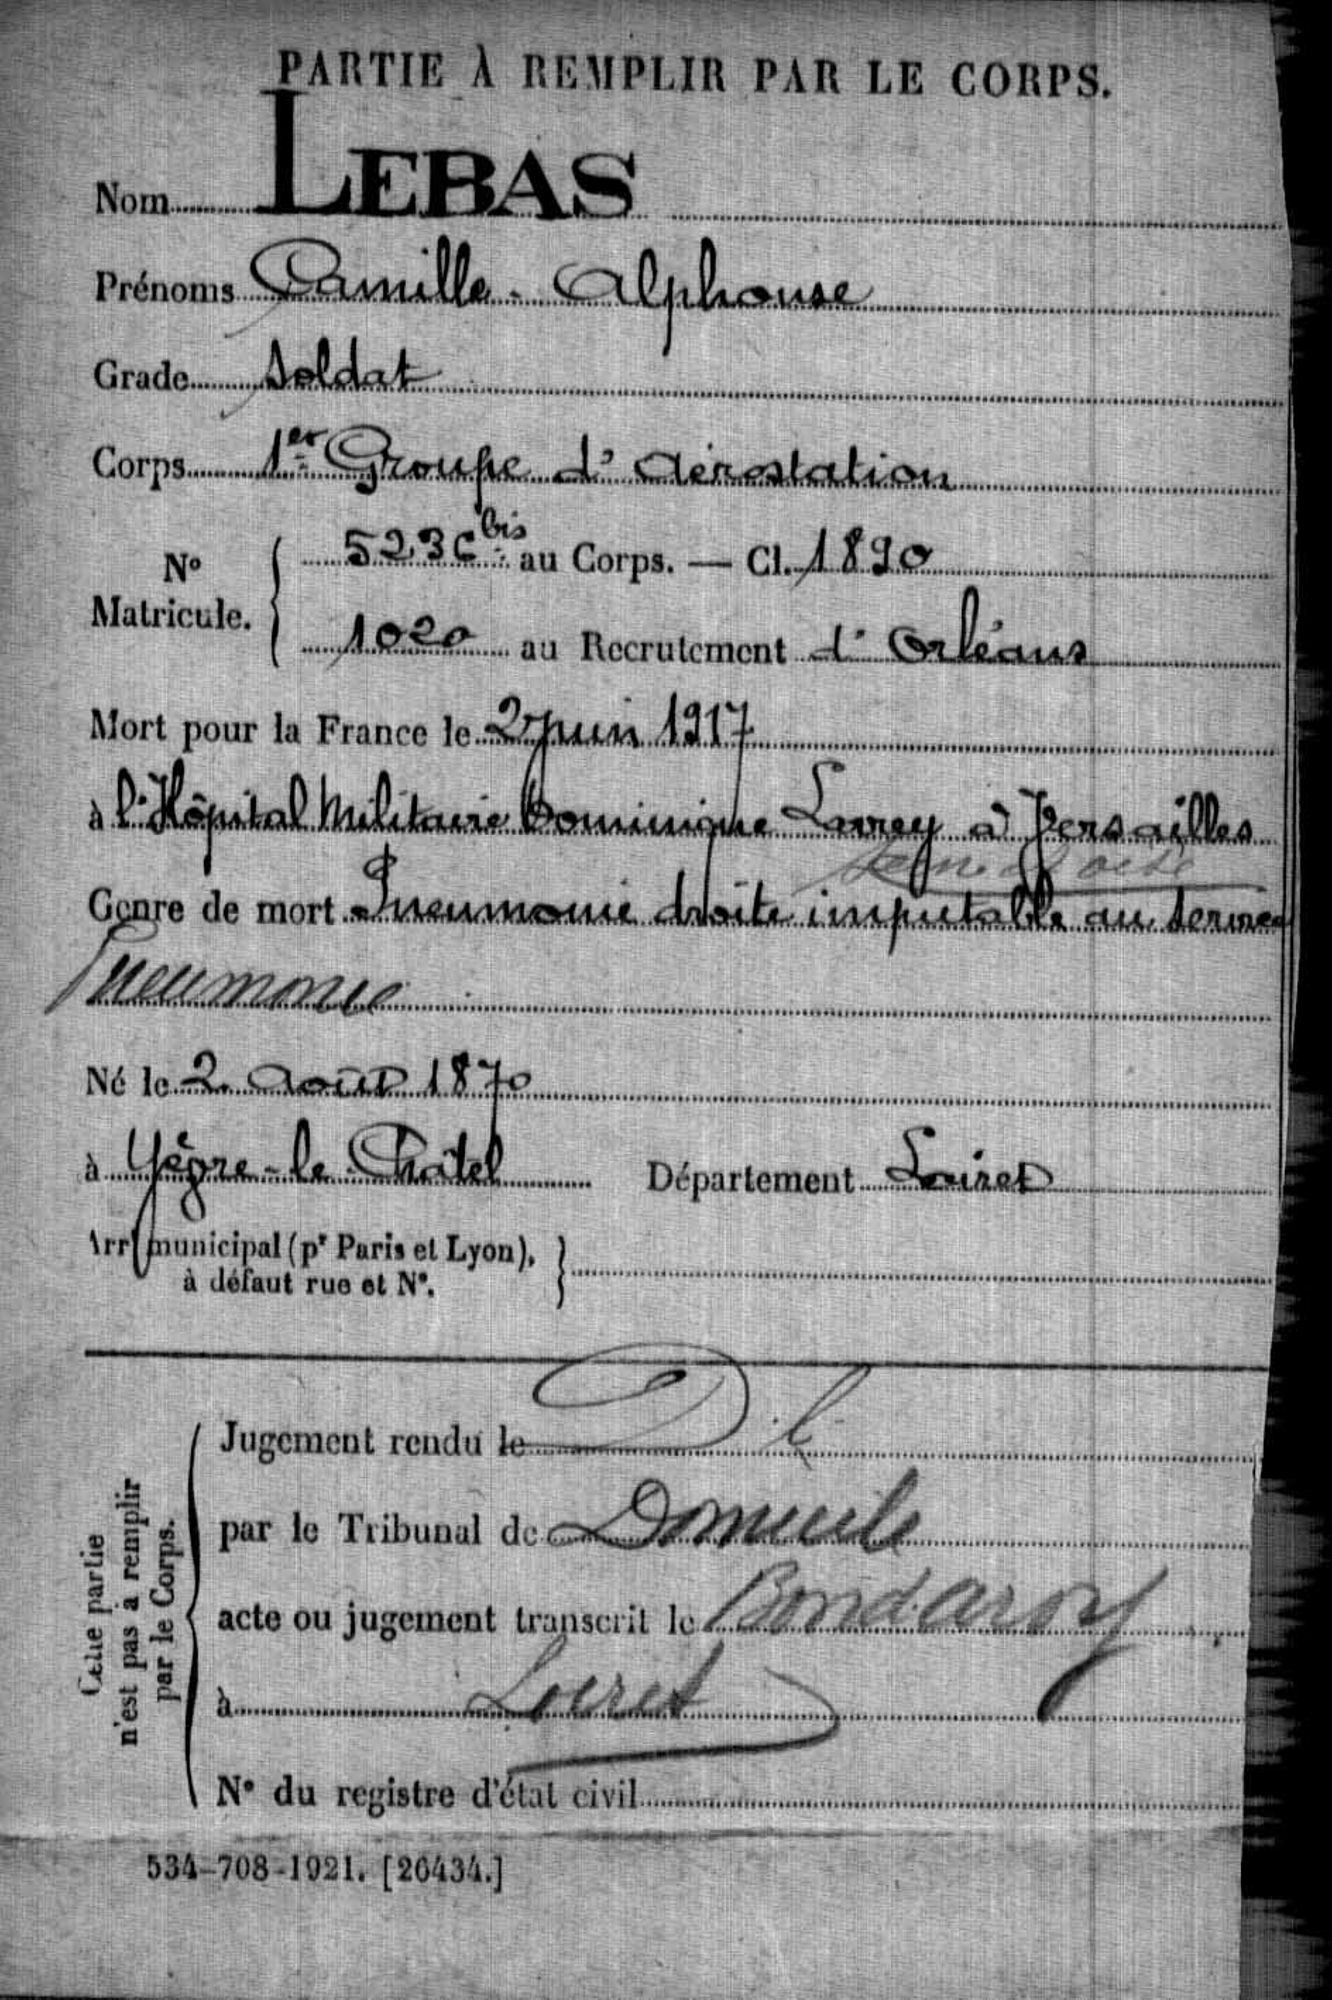 PARTIE À REMPLIR PAR LE CORPS.
Nom LEBAS
Prénoms Camille - Alphonse
Grade Soldat
Corps 1er Groupe d' Aérostation
N° Matricule. 5236 bis au Corps. — Cl. 1890
1020 au Recrutement d' Orléans
Mort pour la France le 2 juin 1917
à l'Hôpital Militaire Dominique Larrey à Versailles
Seine & Oise
Genre de mort Pneumonie droite imputable au service
Pneumonie
Né le 2 Août 1870
à Yèvre-le-Châtel Département Loiret
Arrt municipal (pr Paris et Lyon),
à défaut rue et N°.
Cette partie
n'est pas à remplir
par le Corps.
Jugement rendu le
par le Tribunal de Domicile
acte ou jugement transcrit le Bondaroy
à Loiret
N° du registre d'état civil
534-708-1921. [26434.]